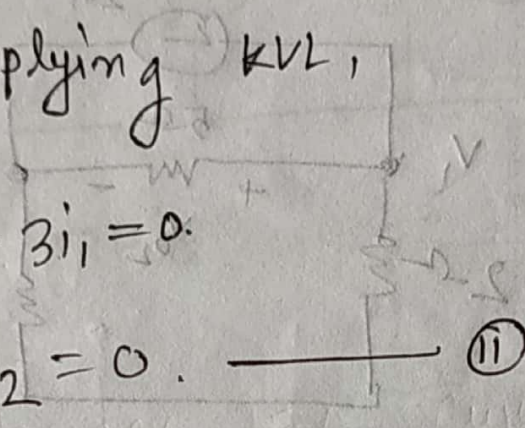 plying KVL,
3i₁ = 0.
₂ = 0. ——— (ii)